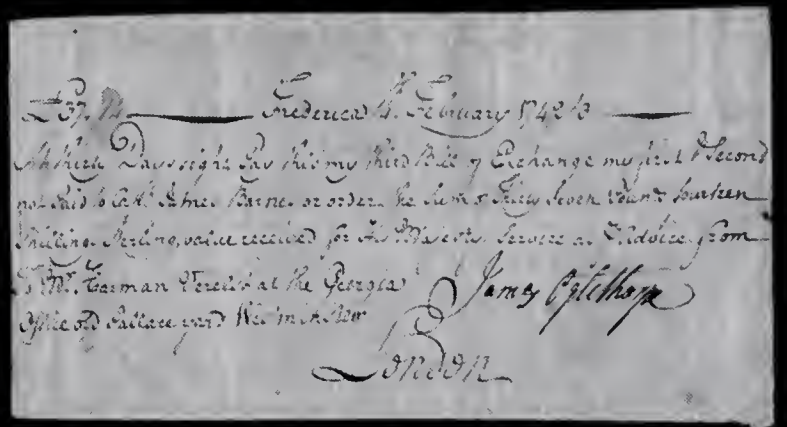 £37.14 Frederica 14th February 1742/3
At thirty Days sight Pay this my third Bill of Exchange my first & Second
not paid to Capt. James Barnes or order the Sum of Thirty Seven Pounds fourteen
Shillings Sterling, value received for His Majesty's Service as Pr. Advice from
To Mr. Harman Verelst at the Georgia
James Oglethorpe
Office old Pallace yard Westminster
London